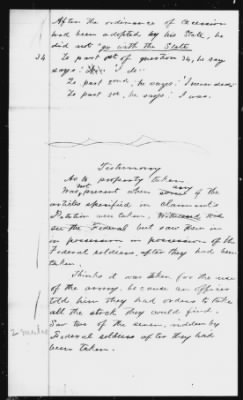 After the ordinance of secession
had been adopted by his State, he
did not "go with the State."
34 To part of question 34, he say
says: "I do"
To part 2nd, he says: "I never did."
To part 3d, he says: I was.
Testimony
As to property taken
Was not present when any of the
articles specified in claimant's
Petition were taken. Witness did not
see the Federal but saw them in
in possession in possession of the
Federal soldiers, after they had been
taken.
Thinks it was taken for the use
of the army, because an officer
told him they had orders to take
all the stock they could find.
2 mules Saw two of the seven, ridden by
Federal soldiers after they had
been taken.